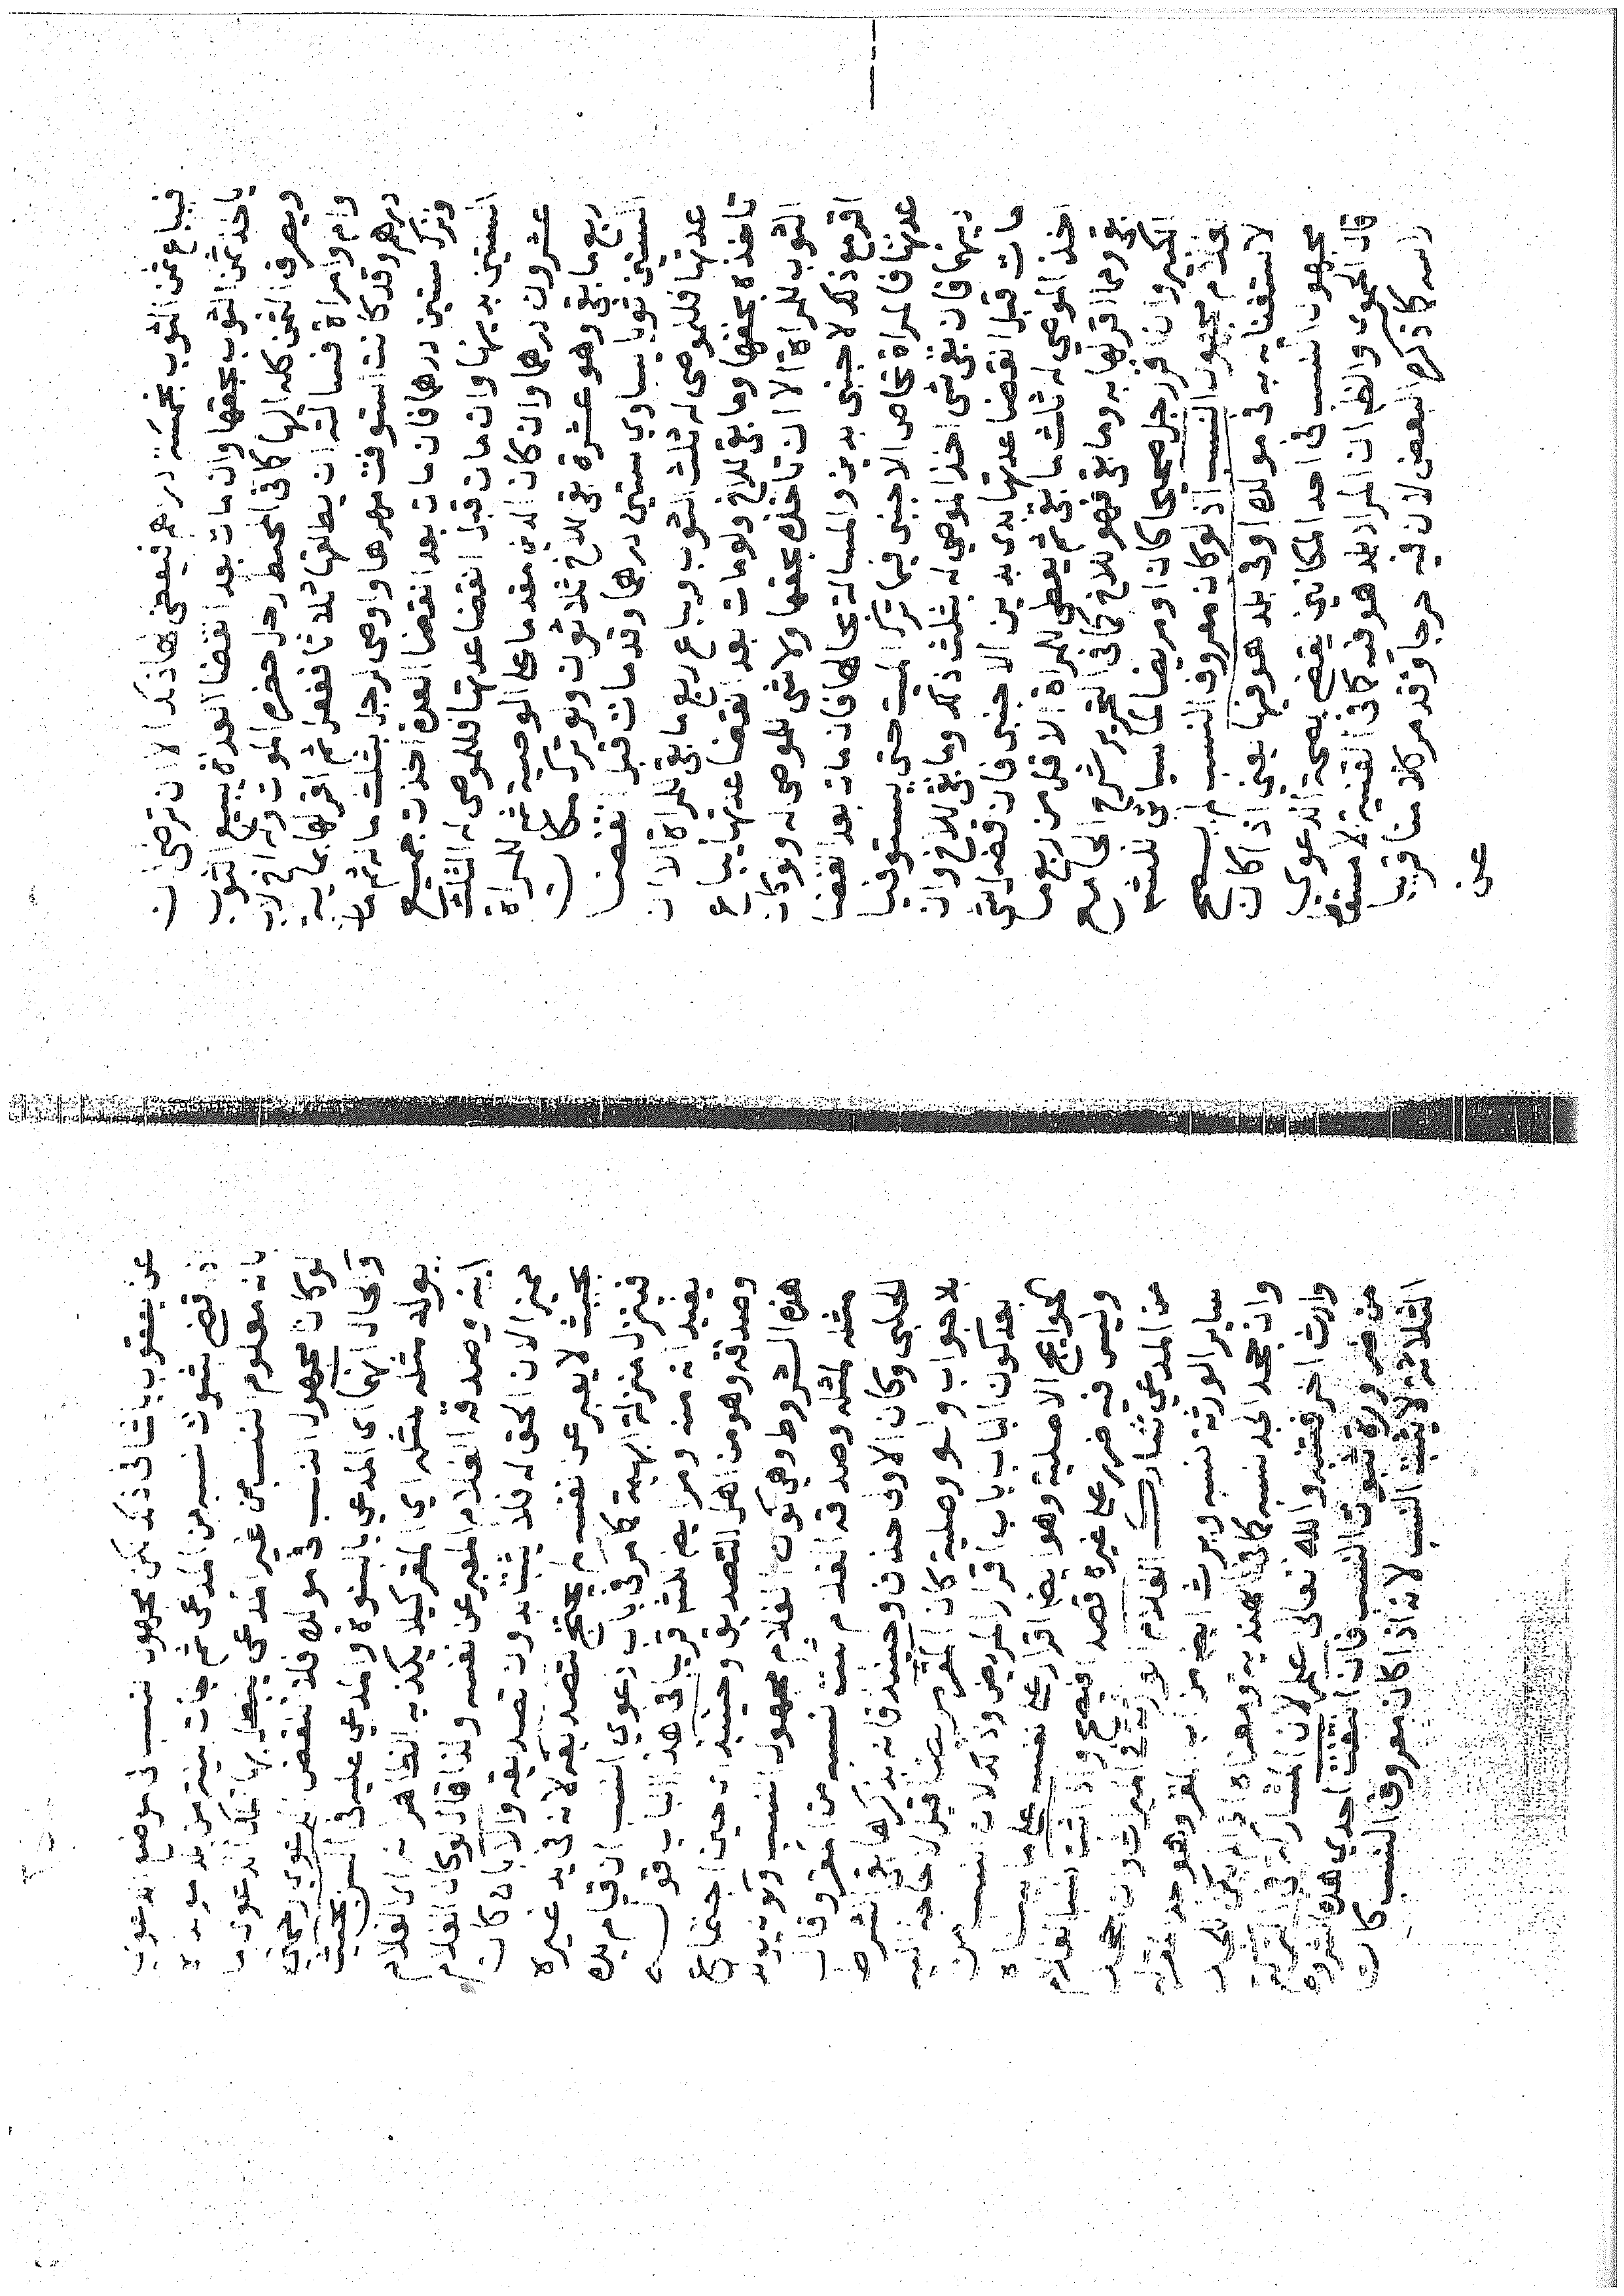 فيباع من الثوب بخمسة دراهم فيعطى لها ذلك الا ان ترضى ان
ياخذ من الثوب بحقها وان مات بعد انقضا العدة يبيع الثوب
ويصرف الثمن كله اليها كما في المحيط رجل حضره الموت وله اخ لاب
وام وامراة فسالته ان يطلقها ثلاثا ففعل ثم اقر لها بماية
درهم وقد كانت استوفت مهرها واوصى لرجل بثلث ماله ثم مات
وترك ستين درهما فان مات بعد انقضا العدة اخذت جميع
الستين بدينها وان مات قبل انقضا عدتها فللموصى له الثلث
عشرون درهما وان كان الدين مقدما على الوصية ثم للمراة
ربع ما بقي وهو عشرة بقي للاخ ثلاثون ولو ترك مكان
الستين ثوبا يساوي ستين درهما وقد مات قبل انقضا
عدتها فللموصى له ثلث الثوب ويباع ربع ما بقي للمراة الا ان
تاخذه بحقها وما بقي للاخ ولو مات بعد انقضا عدتها يباع
الثوب للمراة الا ان تاخذه بحقها ولا شي للموصى له ولو كان
اقر مع ذلك لاجنبي بدين والمسالة بحالها فان مات بعد انقضا
عدتها فالمراة تحاص الاجنبي فيما ترك الميت حتى يستوفيا
دينهما فان بقي شي اخذ الموصى له ثلث ذلك وما بقي للاخ وان
مات قبل انقضا عدتها بدي بدين الاجنبي فان فضل شي
اخذ الموصى له ثلث ما بقي ثم يعطى للمراة الاقل من ربع ما
بقي ومما اقر لها به وما بقي فهو للاخ كما في التحرير شرح الجامع
الكبير وان اقر رجل صحيحا كان او مريضا كما سياتي للشرح
لغلام مجهول النسب اذ لو كان معروف النسب لم يسمع
لاستغنايه به في مولده او في بلد هو فيها يعني اذا كان
مجهول النسب في احد المكانين يقضى بصحة الدعوى
قال الحموي والظ ان المراد بلد هو فيه كما في القنية لا مسقط
راسه كما ذكره البعض لان فيه حرجا وقد مر كلامنا قريبا
عن
عن يعقوب باشا في ذلك لكن مجهول نسب في موضع الدعوى
قضي بثبوت نسبه من المدعي ثم جات بينة من بلد مولده
بانه معلوم النسب من غير المدعي يبطل بها تلك الدعوى
لو كان مجهول النسب في مولده فلا تنقض الدعوى
والحال انهما اي المدعي بالبنوة والمدعي عليه في السن بحيث
يولد مثله لمثله اي المقر كيلا يكذبه الظاهر انه اي الغلام
ابنه وصدقه الغلام المعبر عن نفسه ولذا قال لو كان الغلام
مميز الان الحق له فلا يثبت بدون تصديقه والا بان كان
بحيث لا يعبر عن نفسه لم يحتج لتصديقه لانه في يد غيره
فينزل منزلة البهيمة كما مر في باب دعوى النسب ان قيام يده
يفيد انه منه ومر ايضا للشرح قريبا في هذا الباب قوله
وصدقه وهو من اهل التصديق وحينئذ اي حين اجتماع
هذه الشروط وهي كون الغلام مجهول النسب وكونه يولد
مثله لمثله وصدقه الغلام ثبت نسبه من المقر وقال
الحلبي وكان الاولى حذف وحينئذ فانه ذكرها بقي الشرط
بلا جواب ولو وصلية كان المقر مريضا قيل لا حاجة اليه
بعد كون الباب باب اقرار المريض وذلك لان النسب من
الحوايج الاصلية وهو ايضا اقرار على نفسه على ما بيناه
وليس فيه ضرر على غيره قصدا فيصح واذا ثبت نسب الغلام
من المدعي شارك الغلام الورثة في الميراث وان جحد
ساير الورثة نسبه ويرث ايضا من اب المقر وهو جد المقر له
وان جحد الجد نسبه كما في الهندية ومعناه اذا لم يكن للجد
وارث اخر فتنبه والله تعالى اعلم لان المشاركة في التركة
من ضرورة ثبوت النسب فان انتفت احدى هذه الشروط
الثلاثة لا يثبت النسب لانه اذا كان معروف النسب كان